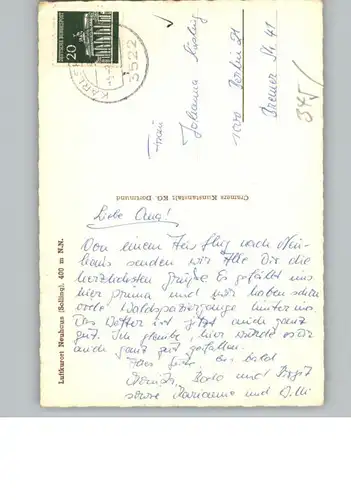 DEUTSCHE BUNDESPOST
20
3522
KARLS
Frau
Johanna
1000 Berlin 21
Bremer Str. 41
345/
Cramers Kunstanstalt KG. Dortmund
Luftkurort Neuhaus (Solling), 400 m N.N.
Liebe Oma!
Von einem Ausflug nach Neu-
haus senden wir Alle Dir die
herzlichsten Grüße. Es gefällt uns
hier prima und wir haben schon
viele Waldspaziergänge hinter uns.
Das Wetter ist jetzt auch ganz
gut. Ich glaube, hier würde es Dir
auch ganz gut gefallen.
Bis bald
Bodo und Birgit
sowie Marianne und Willi